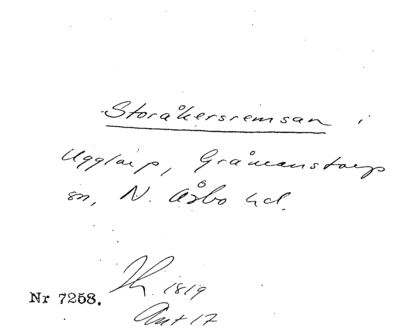 Storåkersremsan i
Ugglarp, Gråmanstorps
sn, N. Åsbo hd.
Nr 7258.
1819
Akt 17